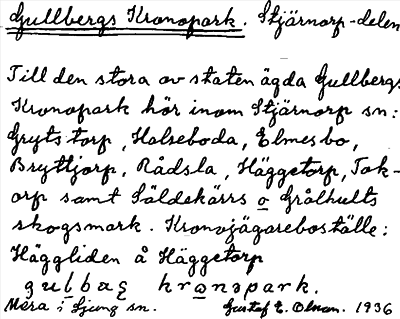 Gullbergs Kronopark. Stjärnorp-delen
Till den stora av staten ägda Gullbergs
Kronopark hör inom Stjärnorp sn:
Grytstorp, Halseboda, Elmesbo,
Bryttjorp, Rådsla, Häggetorp, Tok-
orp samt Säldekärrs o Grålhults
skogsmark. Kronojägareboställe:
Häggliden å Häggetorp
gulbag kronopark.
i Ljung sn. Gustaf E. Olson. 1936